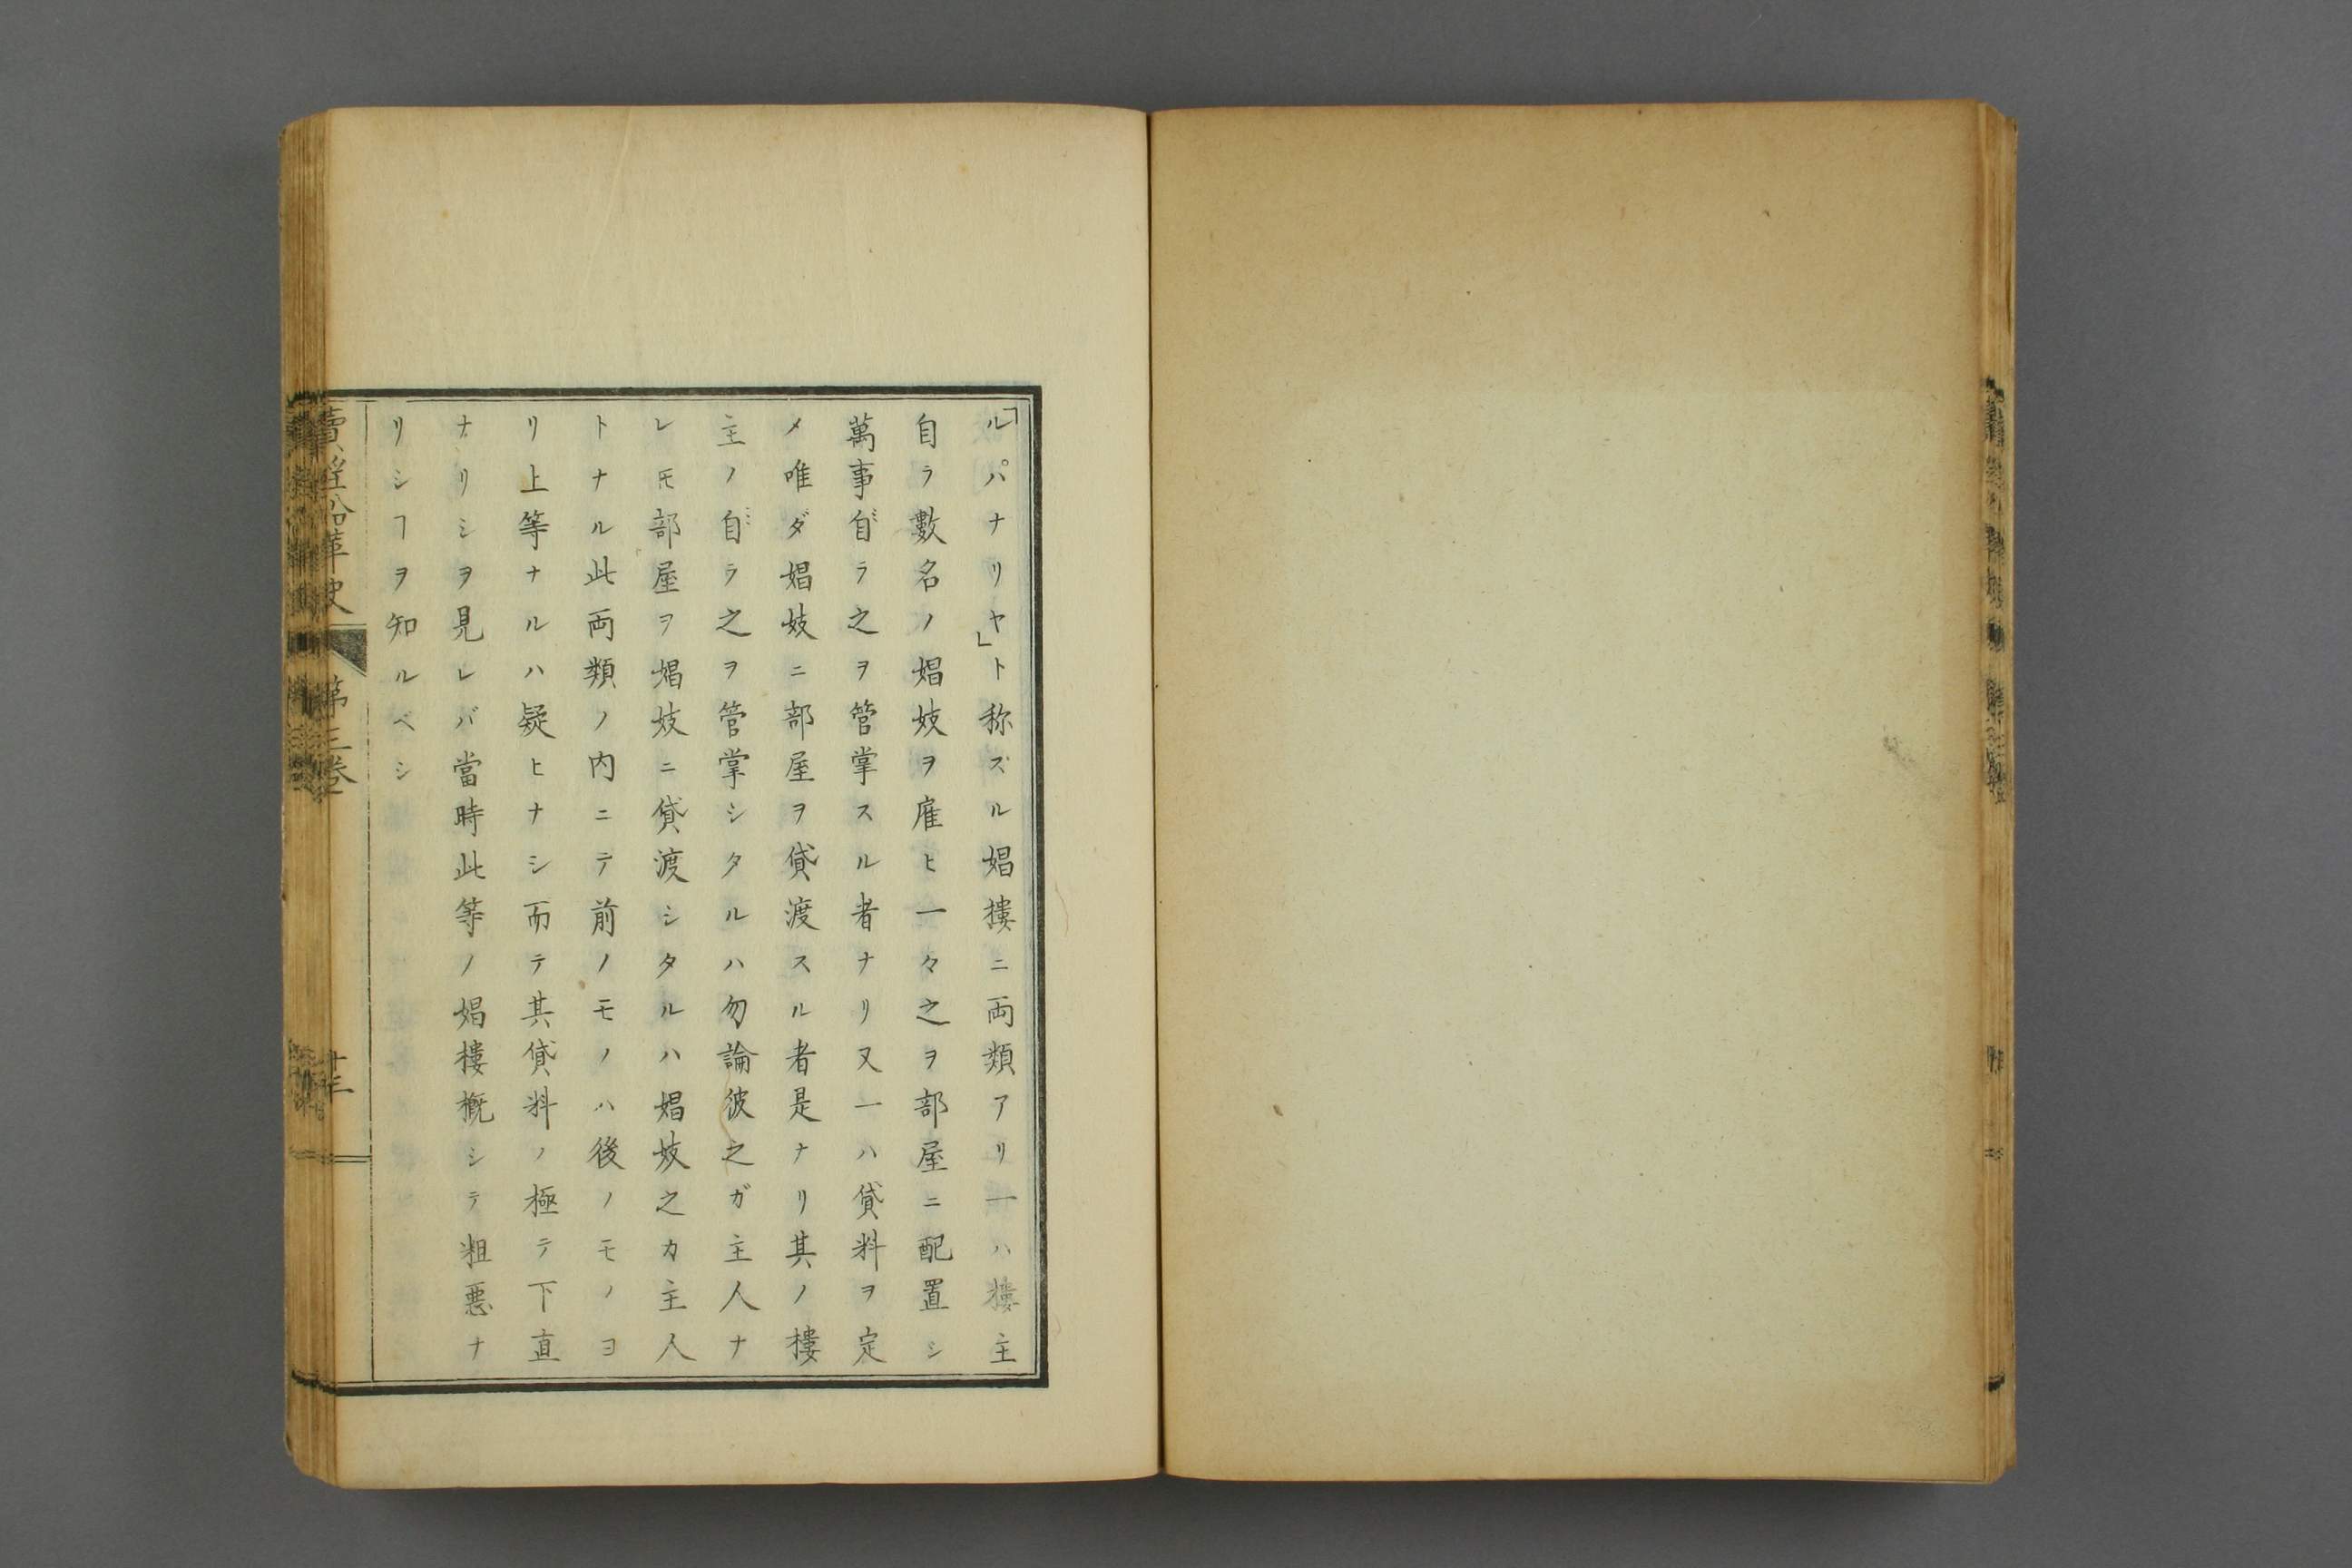 「ルパナリヤ」ト称ズル娼樓ニ両類アリ一ハ樓主
自ラ數名ノ娼妓ヲ雇ヒ一々之ヲ部屋ニ配置シ
萬事自ラ之ヲ管掌スル者ナリ又一ハ貸料ヲ定
メ唯ダ娼妓ニ部屋ヲ貸渡スル者是ナリ其ノ樓
主ノ自ラ之ヲ管掌シタルハ勿論彼之ガ主人ナ
レモ部屋ヲ娼妓ニ貸渡シタルハ娼妓之カ主人
トナル此両類ノ内ニテ前ノモノハ後ノモノヨ
リ上等ナルハ疑ヒナシ而テ其貸料ノ極テ下直
ナリシヲ見レバ當時此等ノ娼樓概シテ粗悪ナ
リシヿヲ知ルベシ
賣淫沿革史 第三巻 十三